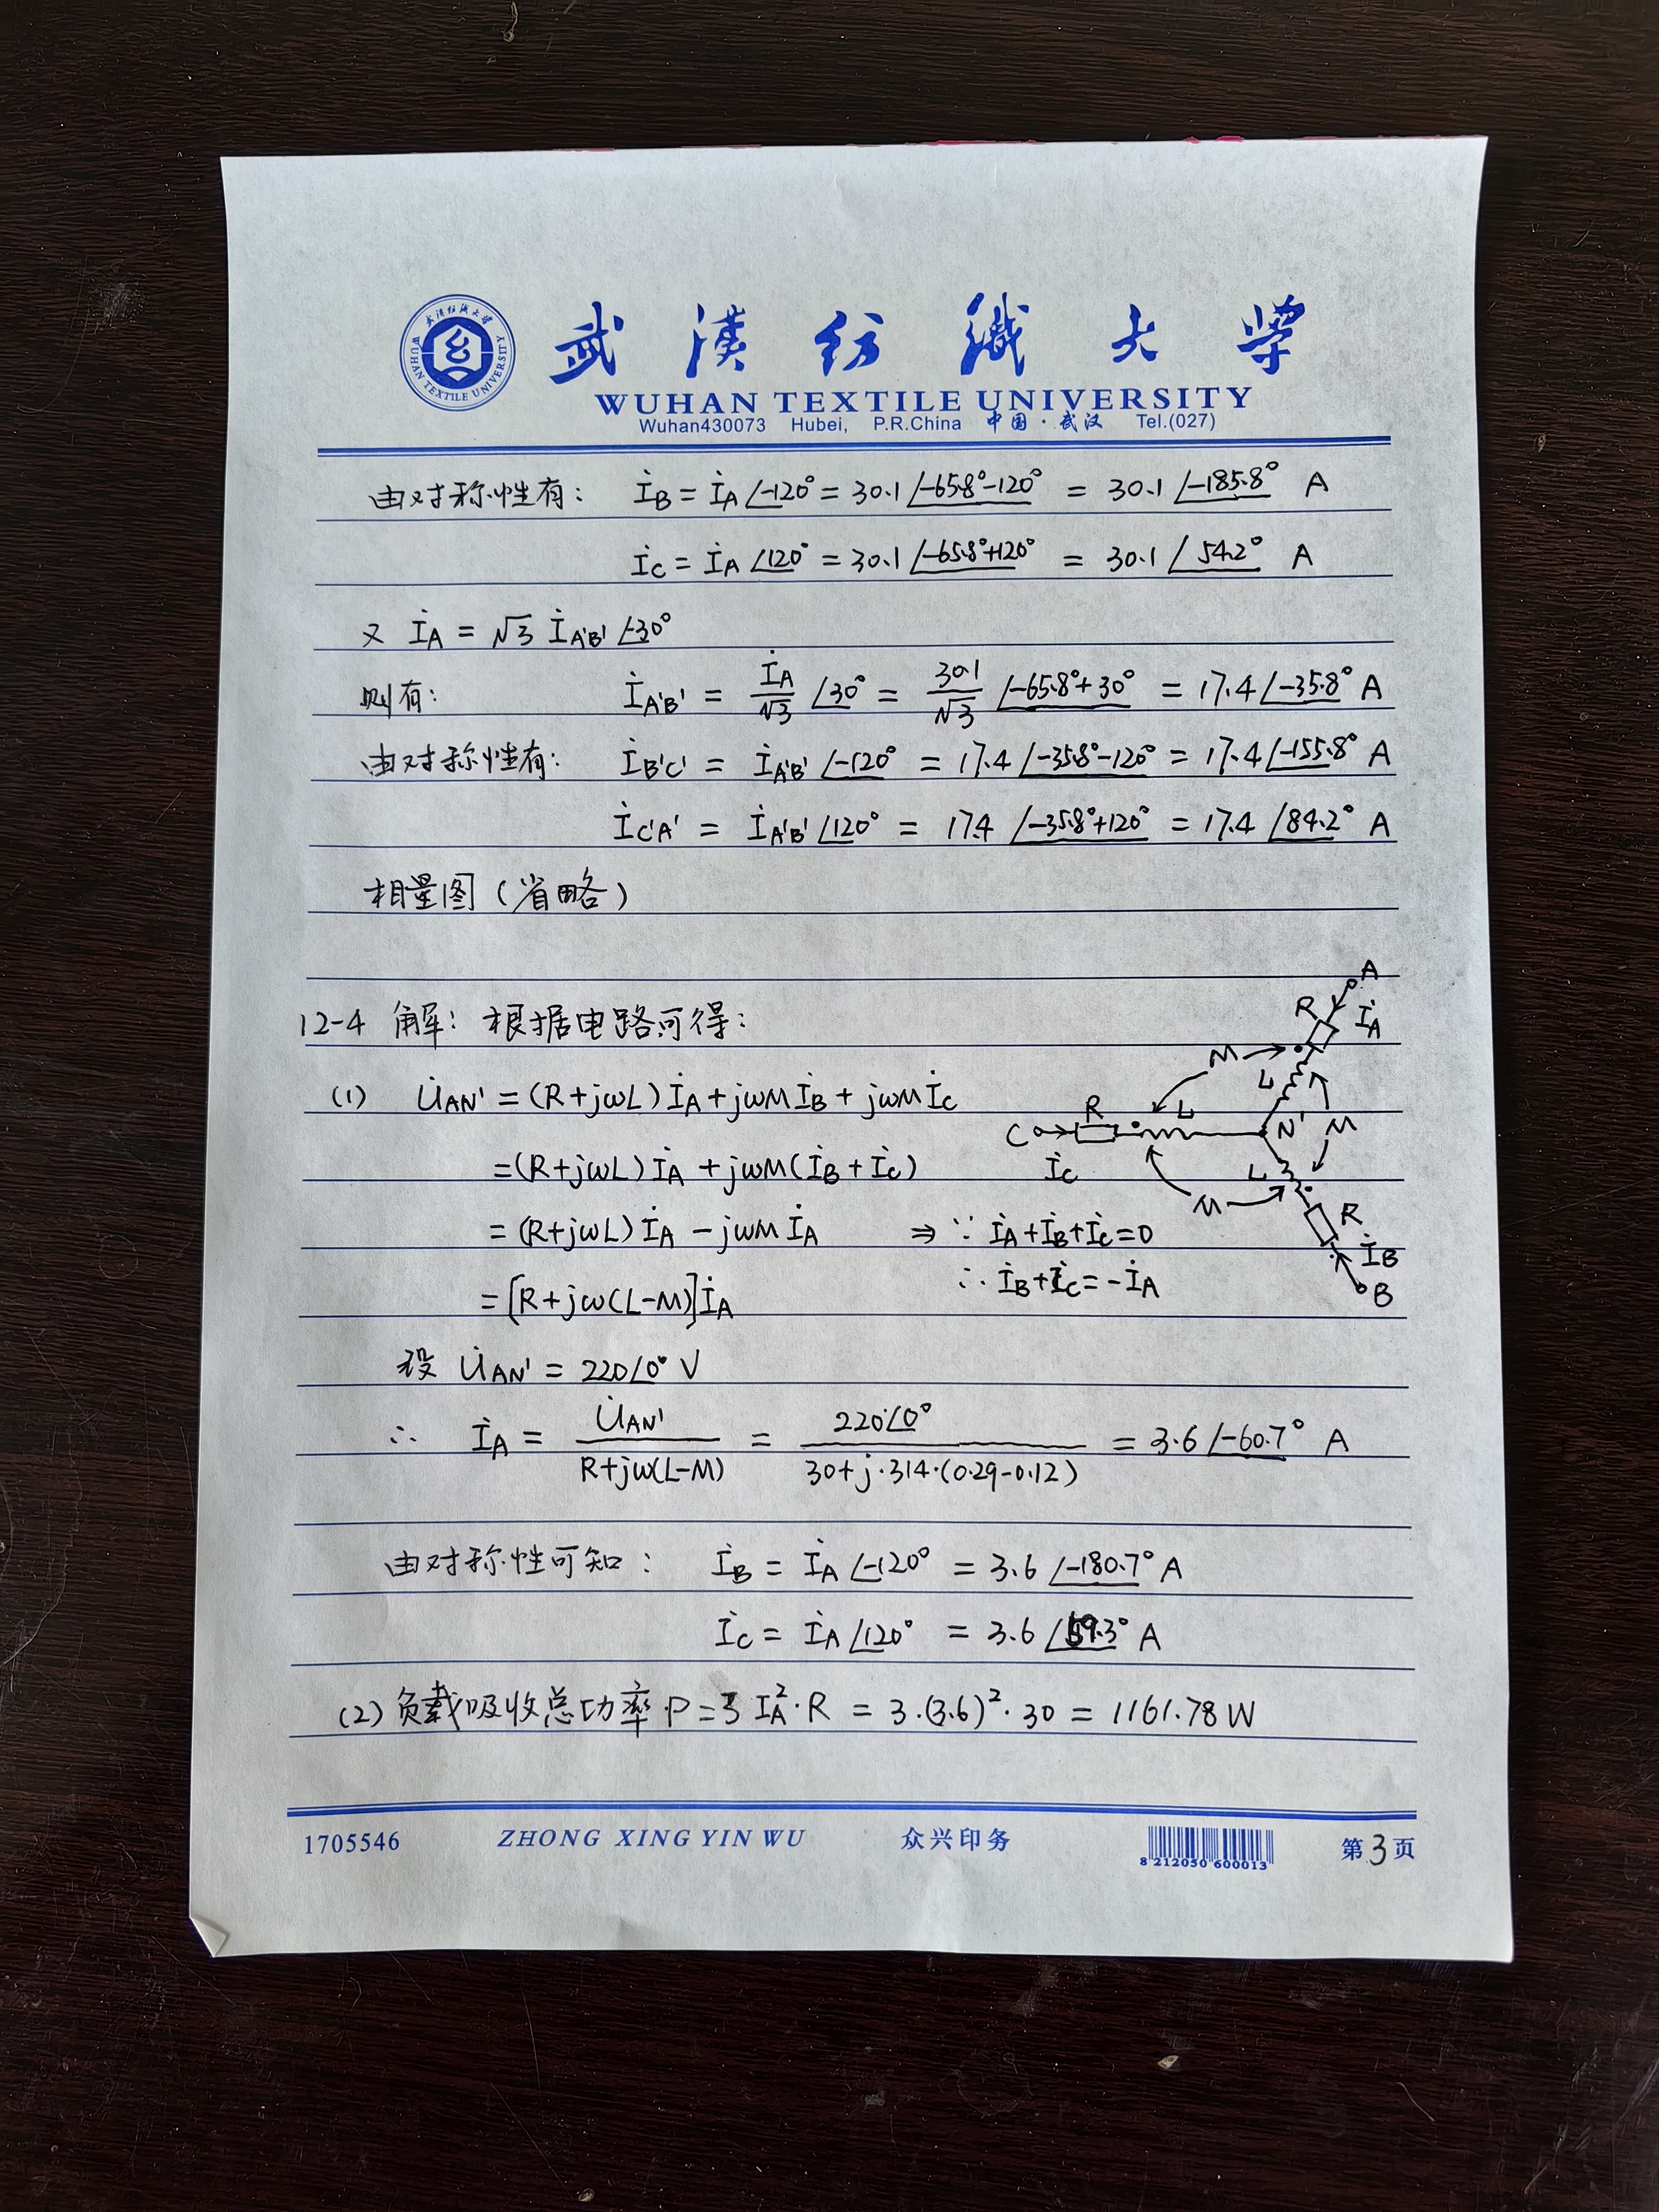 武汉纺织大学
WUHAN TEXTILE UNIVERSITY
Wuhan430073 Hubei, P.R.China 中国·武汉 Tel.(027)
由对称性有: İB = İA∠-120° = 30.1∠-65.8°-120° = 30.1∠-185.8° A
İC = İA∠120° = 30.1∠-65.8°+120° = 30.1∠54.2° A
又 İA = √3 İA'B'∠-30°
则有: İA'B' = İA/√3 ∠30° = 30.1/√3 ∠-65.8°+30° = 17.4∠-35.8° A
由对称性有: İB'C' = İA'B'∠-120° = 17.4∠-35.8°-120° = 17.4∠-155.8° A
İC'A' = İA'B'∠120° = 17.4∠-35.8°+120° = 17.4∠84.2° A
相量图(省略)
12-4 解: 根据电路可得:
(1) U̇AN' = (R+jωL)İA + jωMİB + jωMİC
=(R+jωL)İA + jωM(İB+İC)
= (R+jωL)İA - jωMİA ⇒ ∵ İA+İB+İC=0
∴ İB+İC=-İA
= [R+jω(L-M)]İA
A
R
İA
M
L
R
L
C
N'
M
İC
L
M
R
İB
B
设 U̇AN' = 220∠0° V
∴ İA = U̇AN'/(R+jω(L-M)) = 220∠0°/(30+j·314·(0.29-0.12)) = 3.6∠-60.7° A
由对称性可知: İB = İA∠-120° = 3.6∠-180.7° A
İC = İA∠120° = 3.6∠59.3° A
(2) 负载吸收总功率 P=3 IA²·R = 3·(3.6)²·30 = 1161.78 W
1705546 ZHONG XING YIN WU 众兴印务 8 212050 600013 第3页